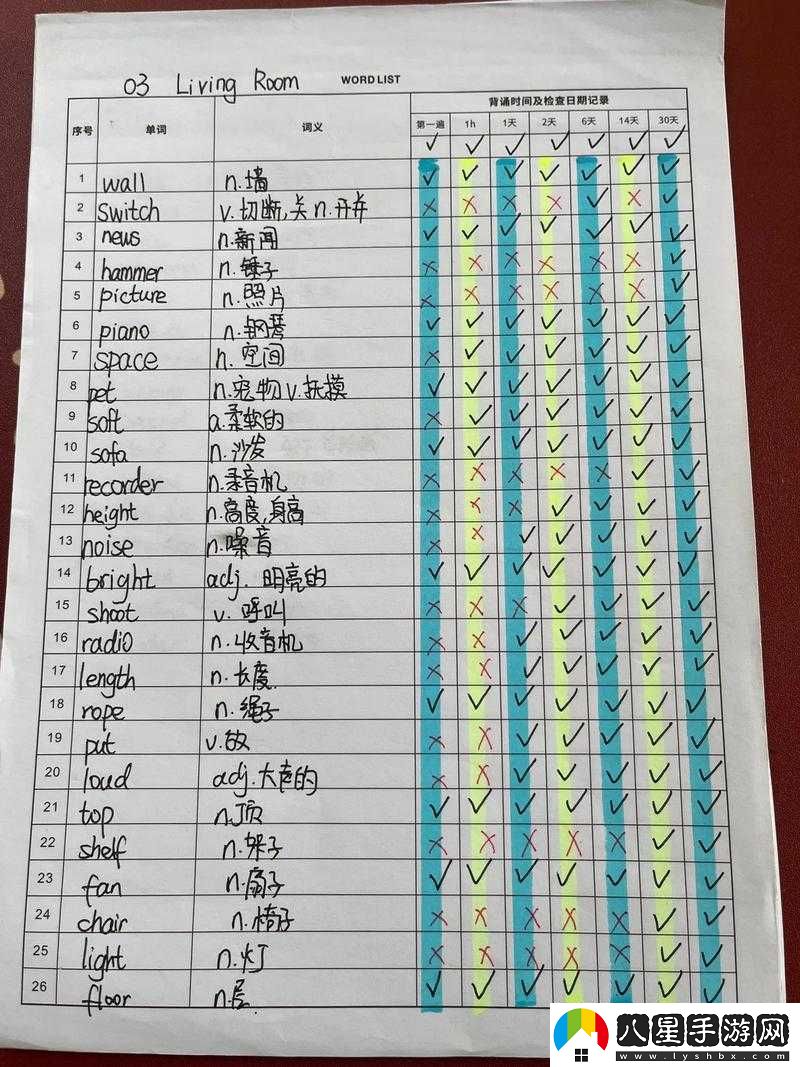 03 Living Room WORD LIST
序号 单词 词义 背诵时间及检查日期记录
第一遍 1h 1天 2天 6天 14天 30天
✓ ✓ ✓ ✓ ✓ ✓ ✓
1 wall n.墙 ✓ ✓ ✓ ✓ ✓ ✓ ✓
2 switch v.切断,关 n.开关 × × × × ✓ × ✓
3 news n.新闻 ✓ ✓ ✓ ✓ ✓ ✓ ✓
4 hammer n.锤子 × × × × × × ✓
5 picture n.照片 × × × × × × ✓
6 piano n.钢琴 ✓ ✓ ✓ ✓ ✓ ✓ ✓
7 space n.空间 × ✓ ✓ ✓ ✓ ✓ ✓
8 pet n.宠物 v.抚摸 ✓ ✓ ✓ ✓ ✓ ✓ ✓
9 soft a.柔软的 × ✓ ✓ ✓ ✓ ✓ ✓
10 sofa n.沙发 ✓ ✓ ✓ ✓ ✓ ✓ ✓
11 recorder n.录音机 × × × × × ✓ ✓
12 height n.高度,身高 × × × ✓ ✓ ✓ ✓
13 noise n.噪音 × × ✓ ✓ ✓ ✓ ✓
14 bright adj.明亮的 ✓ ✓ ✓ ✓ ✓ ✓ ✓
15 shoot v.呼叫 × × × ✓ ✓ ✓ ✓
16 radio n.收音机 × × ✓ ✓ ✓ ✓ ✓
17 length n.长度 × × ✓ ✓ ✓ ✓ ✓
18 rope n.绳子 ✓ ✓ ✓ ✓ ✓ ✓ ✓
19 put v.放 × × ✓ ✓ ✓ ✓ ✓
20 loud adj.大声的 × × ✓ ✓ ✓ ✓ ✓
21 top n.顶 ✓ ✓ ✓ ✓ ✓ ✓ ✓
22 shelf n.架子 × × × × × ✓ ✓
23 fan n.扇子 ✓ ✓ ✓ ✓ ✓ ✓ ✓
24 chair n.椅子 × × × × × ✓ ✓
25 light n.灯 × × × × × ✓ ✓
26 floor n.层 ✓ ✓ ✓ ✓ ✓ ✓ ✓
八星手游网
www.lyshbx.com